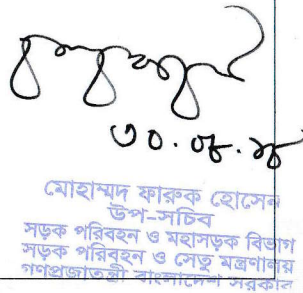 মোহাম্মদ ফারুক হোসেন
উপ-সচিব
সড়ক পরিবহন ও মহাসড়ক বিভাগ
সড়ক পরিবহন ও সেতু মন্ত্রণালয়
গণপ্রজাতন্ত্রী বাংলাদেশ সরকার